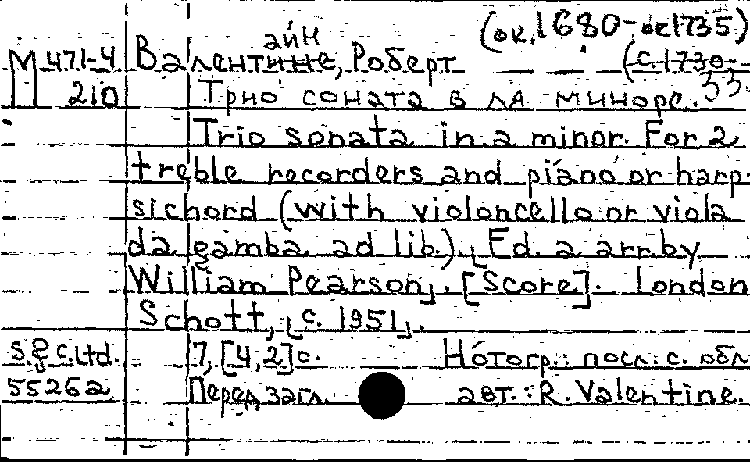 (ок. 1680-ок 1735)
айн
М 471-4 Валентине, Роберт (c. 1730-
210 Трио соната в ля миноре. 33
Trio sonata in a minor. For 2
treble recorders and piano or harp-
sichord (with violoncello or viola
da gamba ad lib.). [Ed. a arr. by
William Pearson]. [Score]. London
Schott, [c. 1951].
S. & C. Ltd. 7, [4,2] с. Нотогр.: посл. с. обл
55262 Перед загл. авт.: R. Valentine.